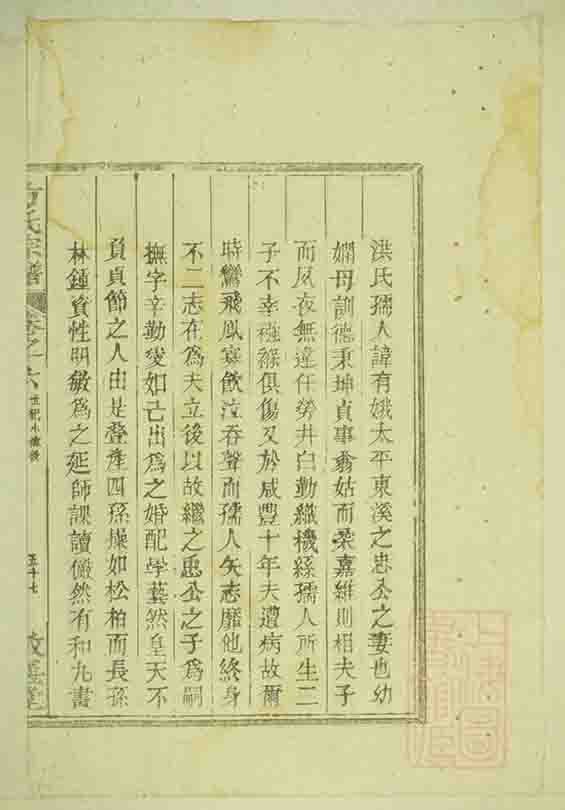 洪氏孺人諱有娥太平東溪之忠公之妻也幼
嫻母訓德秉坤貞事翁姑而柔嘉維則相夫子
而夙夜無違任勞井臼勤織機絲孺人所生二
子不幸襁褓俱傷又於咸豐十年夫遭病故爾
時鸞飛鳳寡飲泣吞聲而孺人矢志靡他終身
不二志在為夫立後以故繼之惠公之子為嗣
撫字辛勤愛如己出為之婚配學藝然皇天不
負貞節之人由是叠產四孫操如松柏而長孫
林鍾資性明敏為之延師課讀儼然有和丸書
方氏宗譜
卷之六
世紀小傳後
五十七
敦善堂